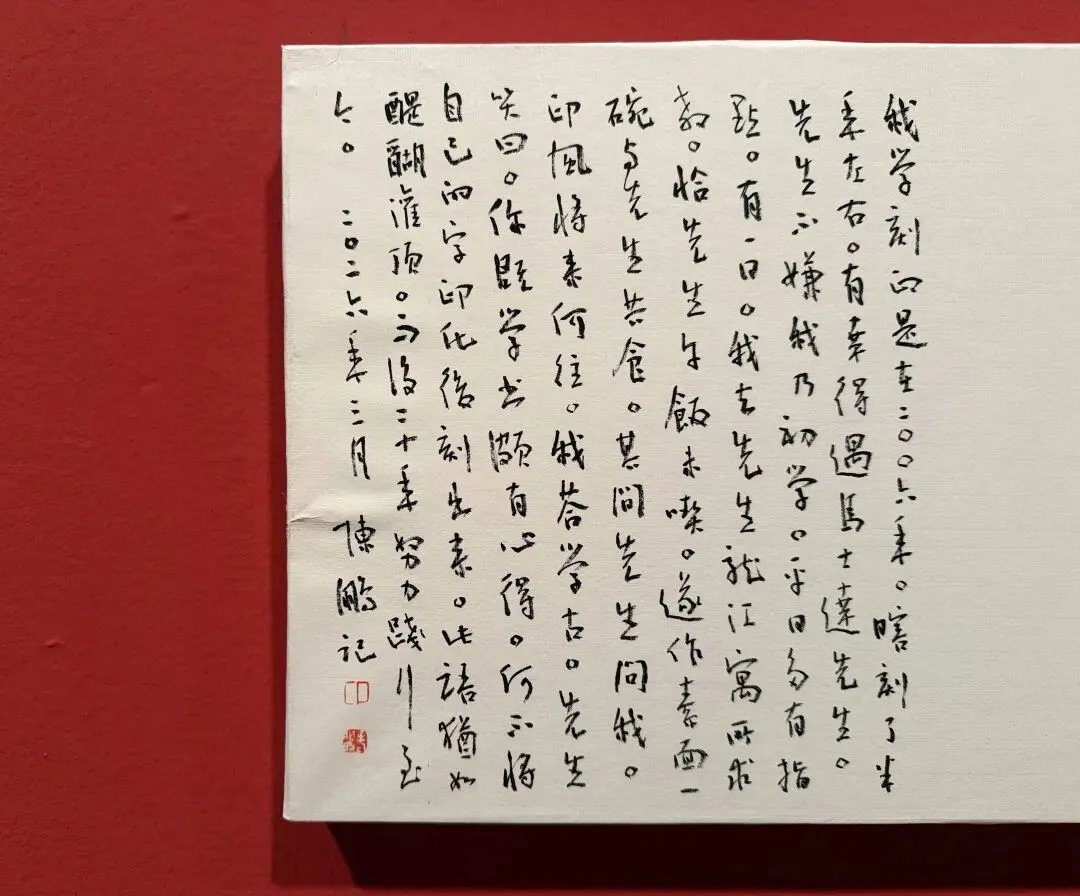 我学刻印是在二〇〇六年。瞎刻了半
年左右。有幸得遇馬士達先生。
先生不嫌我乃初学。平日多有指
點。有一日。我去先生龍江寓所求
教。恰先生午飯未喫。遂作素面一
碗与先生共食。其間先生问我。
印風将来何往。我荅学古。先生
笑曰。你既学书頗有心得。何不将
自己的字印化後刻出来。此語猶如
醍醐灌顶。而後二十年努力踐行至
今。 二〇二六年三月 陳鵬记